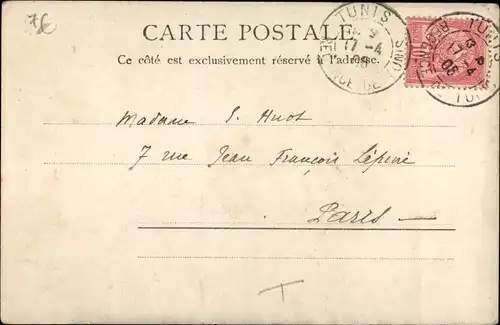 7€
CARTE POSTALE
Ce côté est exclusivement réservé à l'adresse.
TUNIS
17-4
05
RÉGENCE DE TUNIS
TUNIS
17 4
05
Madame S. Huot
7 rue Jean François Lépine
Paris
T